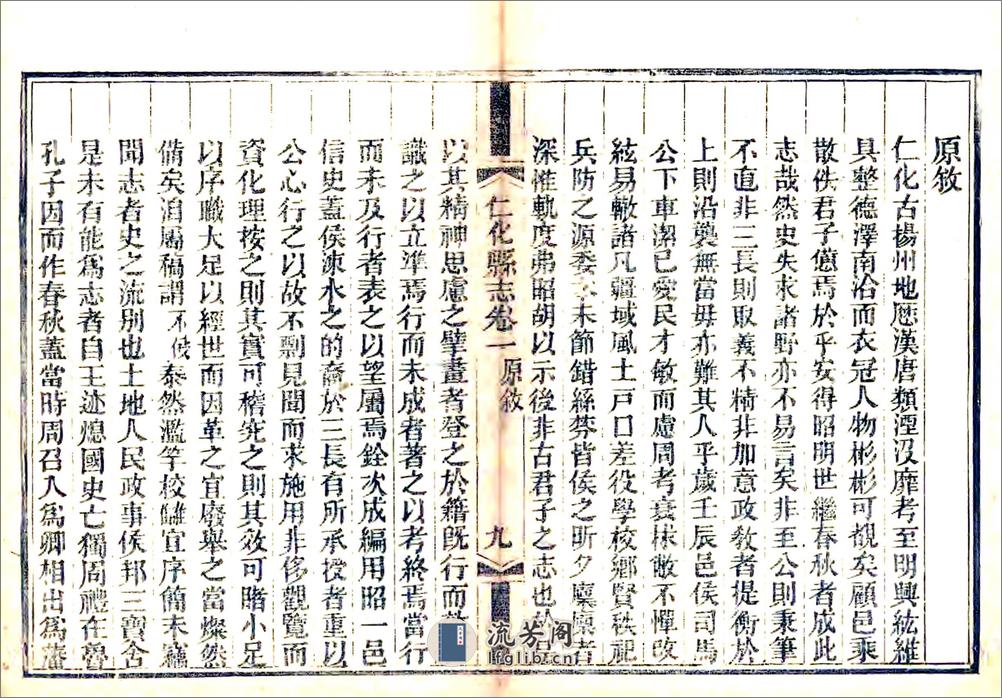 原敘
仁化古揚州地歷漢唐類湮沒靡考至明興紘維
具整德澤南洽而衣冠人物彬彬可覩矣顧邑乘
散佚君子億焉於乎安得昭明世繼春秋者成此
志哉然史失求諸野亦不易言矣非至公則秉筆
不直非三長則取義不精非加意政敎者提衡於
上則沿襲無當毋亦難其人乎歲壬辰邑侯司馬
公下車潔已愛民才敏而慮周考衰校敝不憚改
絃易轍諸凡疆域風土戸口差役學校鄉賢秩祀
兵防之源委本末節錯絲棼皆侯之昕夕廩廩者
深惟軌度弗昭胡以示後非古君子之志也於是
仁化縣志卷一 原敘 九
以其精神思慮之擘畫者登之於籍旣行而
識之以立準焉行而未成者著之以考終焉當行
而未及行者表之以望屬焉銓次成編用昭一邑
信史蓋侯涑水之的裔於三長有所承授者重以
公心行之以故不剽見聞而求施用非侈觀覽而
資化理按之則其實可稽究之則其效可睹小足
以序職大足以經世而因革之宜廢舉之當燦然
備矣洎屬稿謂不佞泰然濫竽校讎宜序簡末竊
聞志者史之流別也土地人民政事侯邦三寶舍
是未有能爲志者自王迹熄國史亡獨周禮在魯
孔子因而作春秋蓋當時周召入爲卿相出爲藩
流芳閣
lfglib.cn